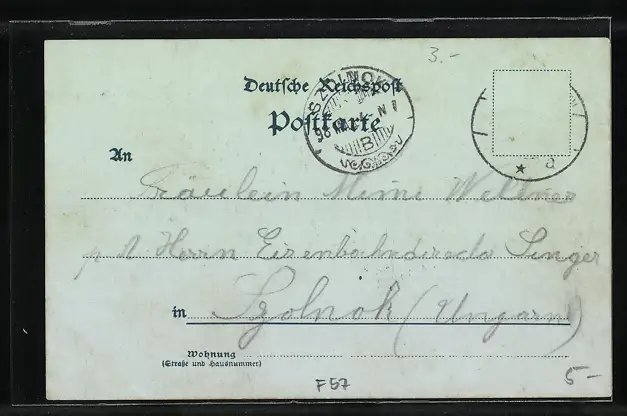 3.-
Deutsche Reichspost
SZOLNOK
Postkarte
98
B
a
An
Fräulein Mimi Wellner
p A. Herrn Eisenbahndirector Singer
in Szolnok (Ungarn)
Wohnung
(Straße und Hausnummer)
F57
5-